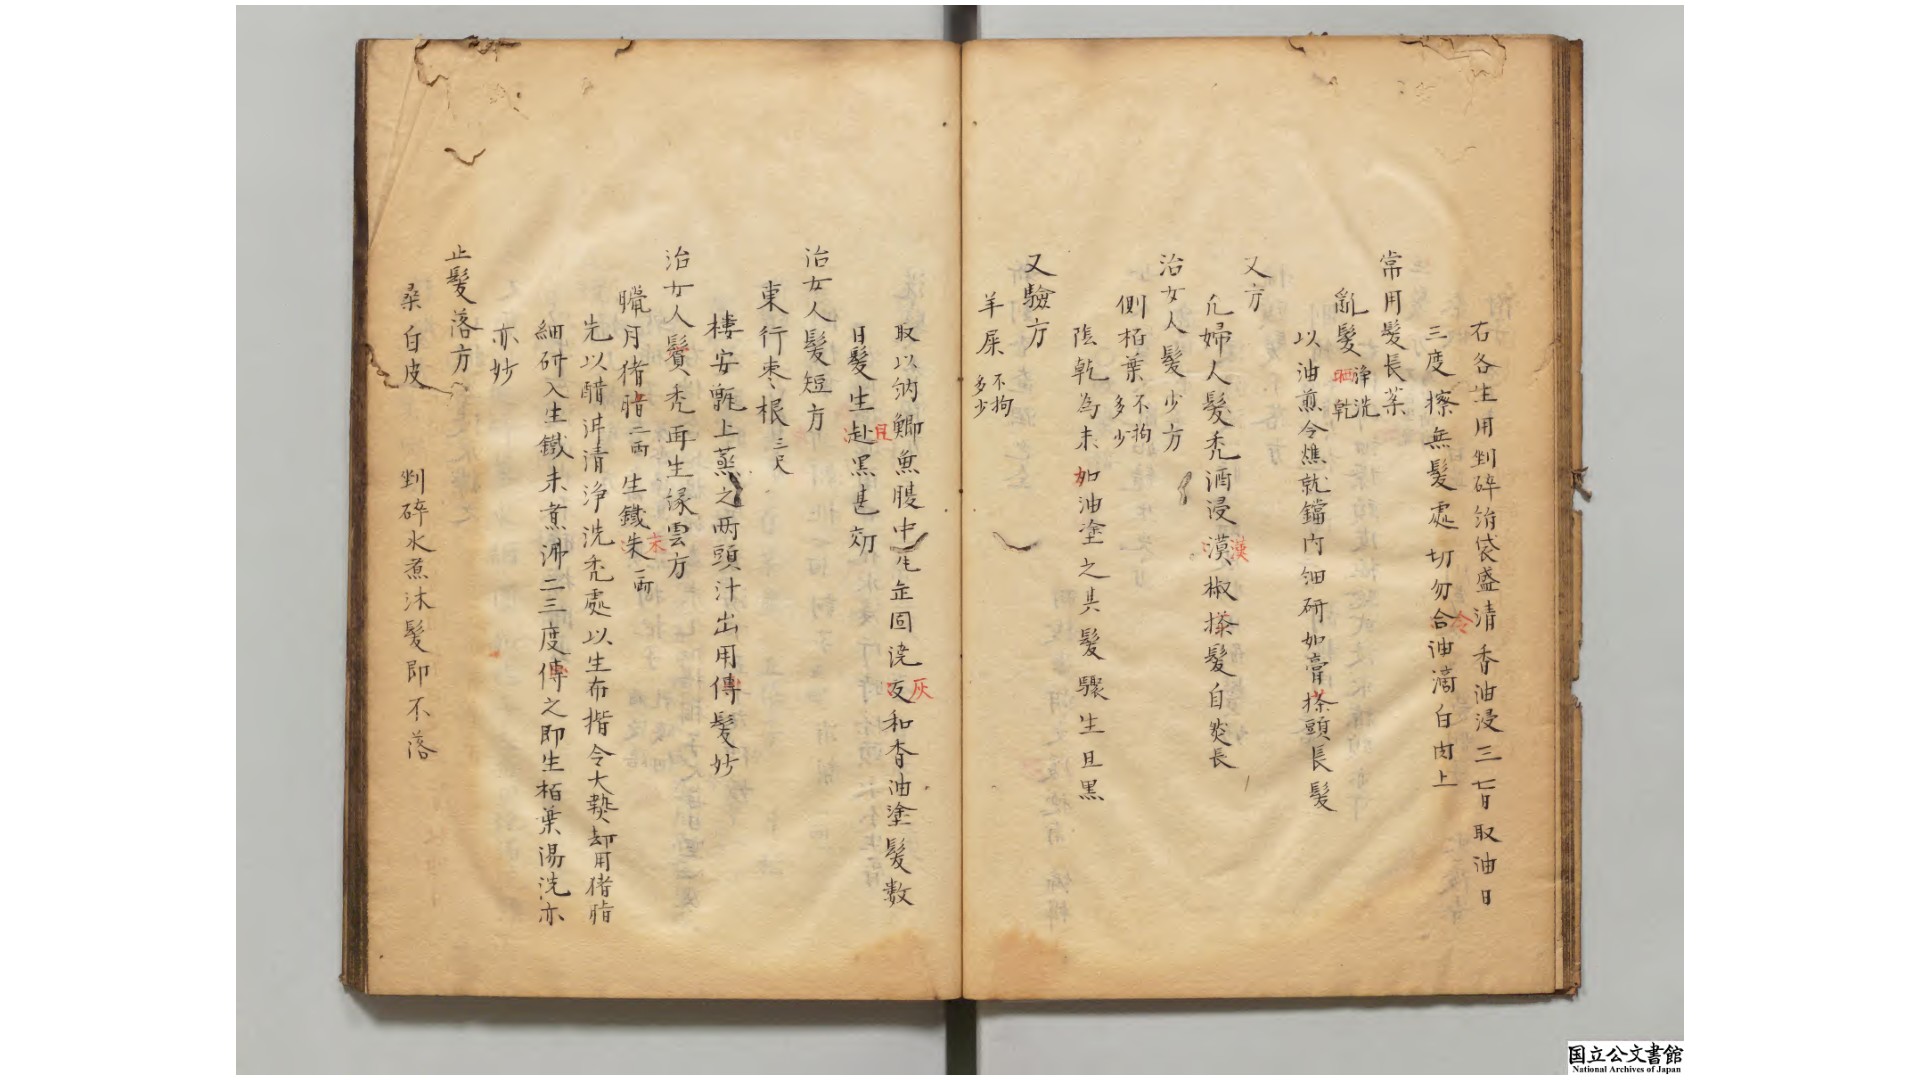 右各生用剉碎絹袋盛清香油浸三七日取油日
三度擦無髮處切勿合油滴白肉上
令
常用髮長藥
亂髮淨洗晒乾
以油煎令燋就鐺內細研如膏搽頭長髮
又方
凢婦人髮禿酒浸漠椒搽髮自然長
漢
治女人髮少方
側栢葉不拘多少
陰乾為末如油塗之其髮驟生且黒
又驗方
羊屎不拘多少
取以鯽魚腹中
和香油塗髮数
灰
日髮生赴黒甚効
且
治女人髮短方
東行枣根三尺
棲安甑上蒸之两頭汁出用傅髮妙
治女人鬢禿再生緑雲方
臘月猪脂二兩 生鐵朱一兩
末
先以醋泔清浄洗禿處以生布揩令大𤍠却用猪脂
細研入生鐵末煮沸二三度傅之即生栢葉湯洗亦
亦妙
止髮落方
桑白皮
剉碎水煮沐髮即不落
国立公文書館
National Archives of Japan